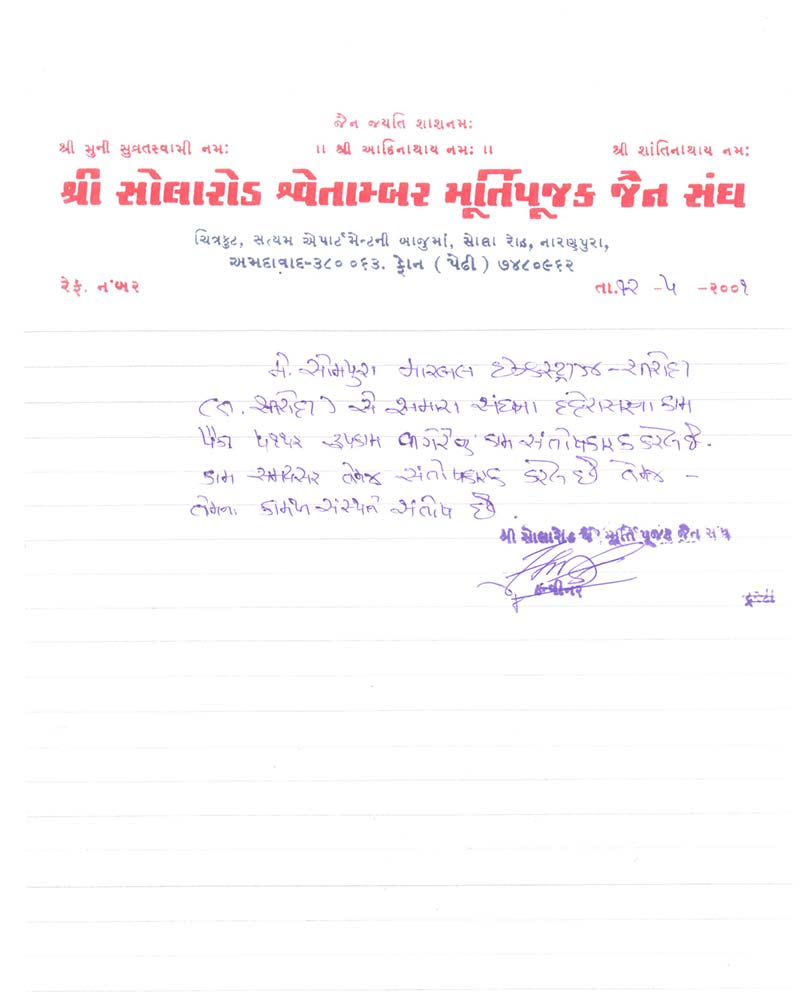 જૈન જયતિ શાશનમ:
શ્રી મુની સુવ્રતસ્વામી નમ: ।। શ્રી આદિનાથાય નમ: ।। શ્રી શાંતિનાથાય નમ:
શ્રી સોલારોડ શ્વેતામ્બર મૂર્તિપૂજક જૈન સંઘ
ચિત્રકુટ, સત્યમ એપાર્ટમેન્ટની બાજુમાં, સોલા રોડ, નારણપુરા,
અમદાવાદ-૩૮૦ ૦૬૩. ફોન ( પેઢી ) ૭૪૮૦૯૬૨
રેફ. નંબર તા.૧૨ -૫ -૨૦૦૧
મે. સોમપુરા મારબલ
એ અમારા સંઘના દહેરાસરના કામ
પૈકી કામ સંતોષકારક કરેલ છે.
કામ સમયસર તેમજ સંતોષકારક કરેલ છે તેમજ -
તેમના કામથી સંસ્થાને સંતોષ છે.
શ્રી સોલારોડ શ્વે મૂર્તિ પૂજક જૈન સંઘ
કન્વીનર ટ્રસ્ટી